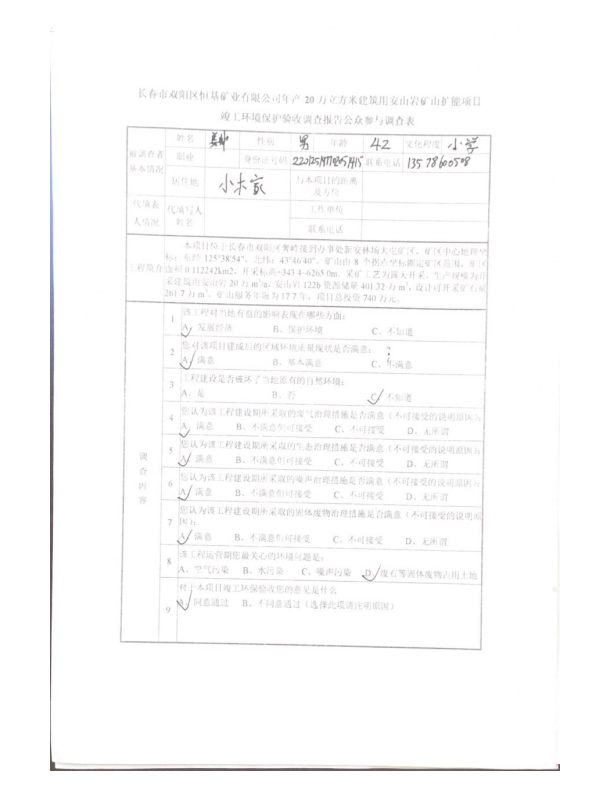 长春市双阳区恒基矿业有限公司年产 20 万立方米建筑用安山岩矿山扩能项目
竣工环境保护验收调查报告公众参与调查表
被调查者
基本情况
姓名 性别 男 年龄 42 文化程度 小学
职业 身份证号码 联系电话 13578600508
居住地 小木家 与本项目的距离
是方位
代填表
人情况
代填写人
姓名
工作单位
联系电话
工程简介
本项目位于长春市双阳区奢岭接到办事处新安林场大屯矿区。矿区中心地理坐
标：东经 125°38′54″，北纬：43°46′40″。矿山由 8 个拐点坐标圈定矿区范围。矿区
面积 0.112242km2。开采标高+343.4~6265.0m。采矿工艺为露天开采。生产规模为开
采建筑用安山岩 20 万 m³/a。安山岩 122b 资源储量 401.32 万 m³，设计可开采矿石量
261.7 万 m³。矿山服务年限为 17.7 年。项目总投资 740 万元。
调查内容
1 该工程对当地有益的影响表现在哪些方面：
A、发展经济 B、保护环境 C、不知道
2 您对该项目建成后的区域环境质量现状是否满意：
A、满意 B、基本满意 C、不满意
3 工程建设是否破坏了当地原有的自然环境：
A、是 B、否 C、不知道
4 您认为该工程建设期所采取的废气治理措施是否满意（不可接受的说明原因）：
A、满意 B、不满意但可接受 C、不可接受 D、无所谓
5 您认为该工程建设期所采取的生态治理措施是否满意（不可接受的说明原因）：
A、满意 B、不满意但可接受 C、不可接受 D、无所谓
6 您认为该工程建设期所采取的噪声治理措施是否满意（不可接受的说明原因）：
A、满意 B、不满意但可接受 C、不可接受 D、无所谓
7 您认为该工程建设期所采取的固体废物治理措施是否满意（不可接受的说明原
因）：
A、满意 B、不满意但可接受 C、不可接受 D、无所谓
8 该工程运营期您最关心的环境问题是：
A、空气污染 B、水污染 C、噪声污染 D、废石等固体废物占用土地
9 对于本项目竣工环保验收您的意见是什么
A、同意通过 B、不同意通过（选择此项请注明原因）